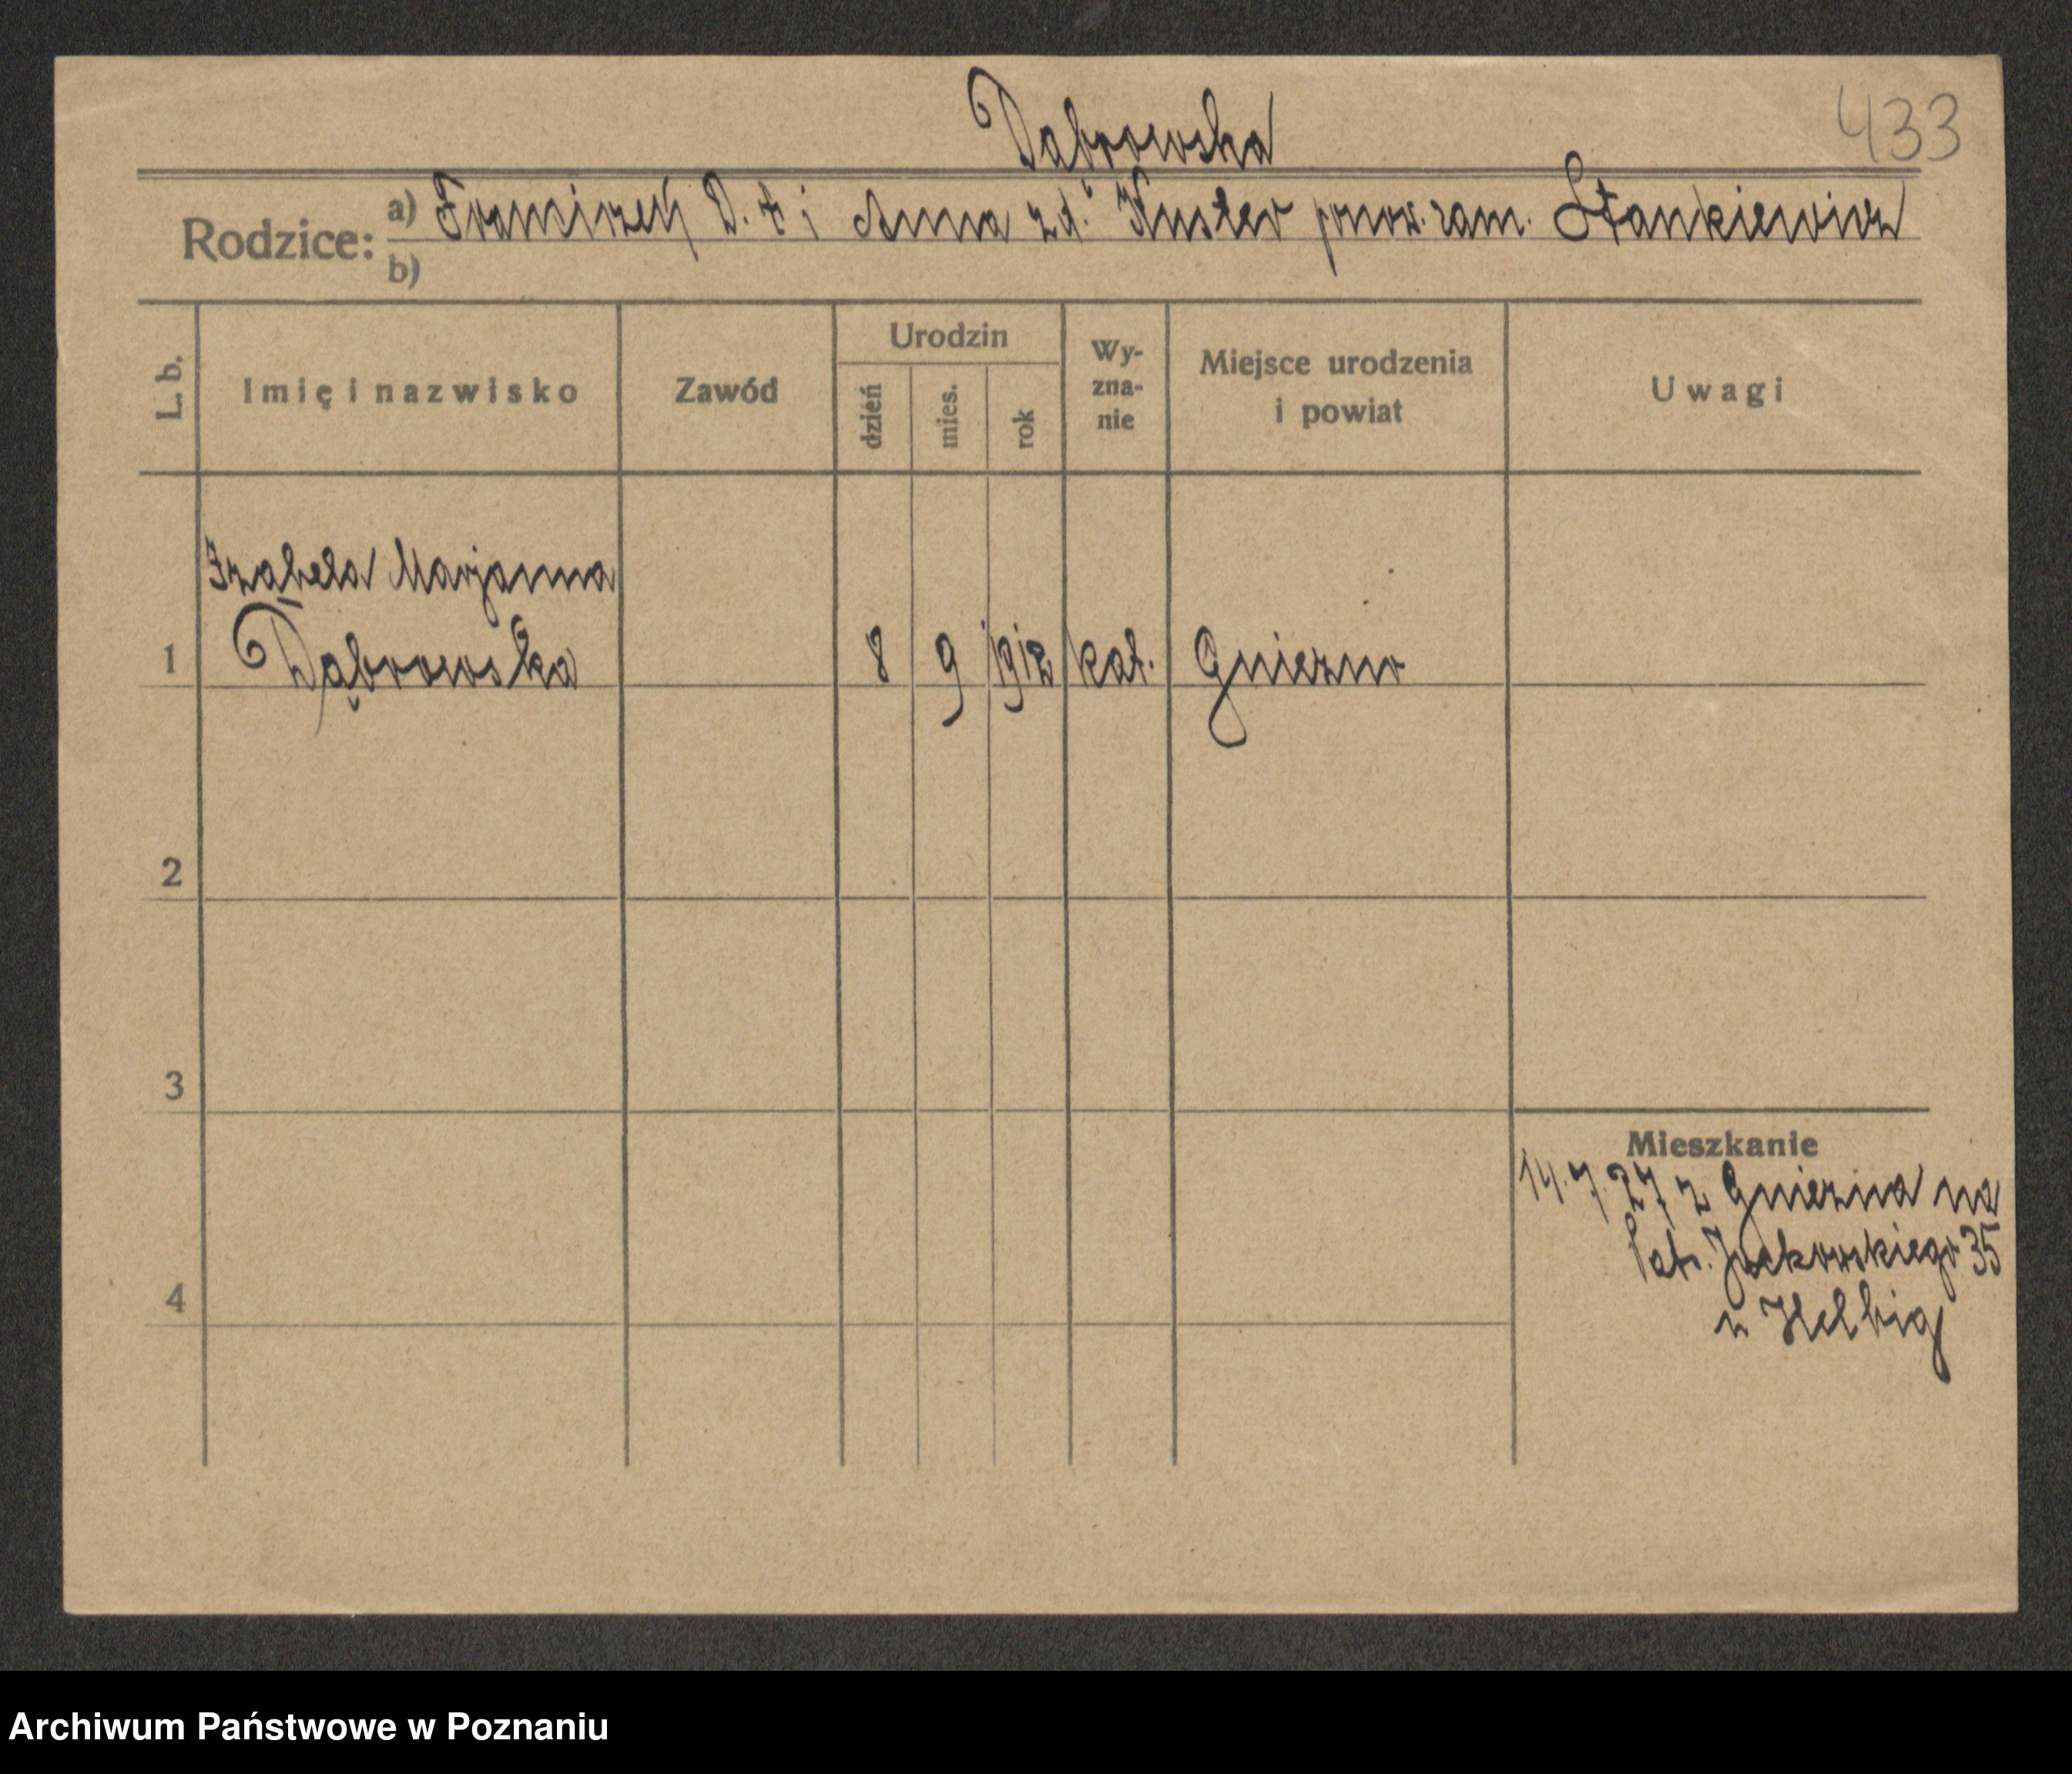 Dąbrowska
433
Rodzice: a) Franciszek D. † i Anna zd. Kuster pnow. zam. Stankiewicz
b)
L. b.
Imię i nazwisko
Zawód
Urodzin
dzień
mies.
rok
Wy-
zna-
nie
Miejsce urodzenia
i powiat
Uwagi
Izabela Marjanna
1 Dąbrowska 8 9 1912 kat. Gniezno
2
3
4
Mieszkanie
14.7.27 z Gniezna na
Jackowskiego 35
u Helbig
Archiwum Państwowe w Poznaniu